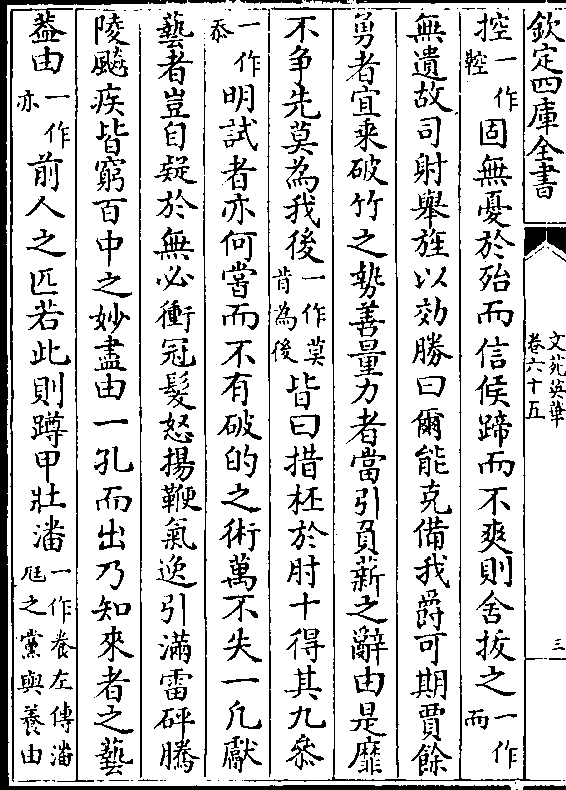 欽定四庫全書
文苑英華
卷六十五
三
控一作鞚固無憂於殆而信候蹄而不爽則舍拔之一作而
無遺故司射舉旌以効勝曰爾能克備我爵可期賈餘
勇者宜乘破竹之勢善量力者當引負薪之辭由是靡
不争先莫為我後一作莫肯為後皆曰措柸於肘十得其九叅
一作忝明試者亦何嘗而不有破的之術萬不失一凡獻
藝者豈自疑於無必衝冠髮怒揚鞭氣逸引滿雷砰騰
陵飈疾皆窮百中之妙盡由一孔而出乃知來者之藝
葢由一作亦前人之匹若此則蹲甲壯潘一作養左傳潘尫之黨與養由